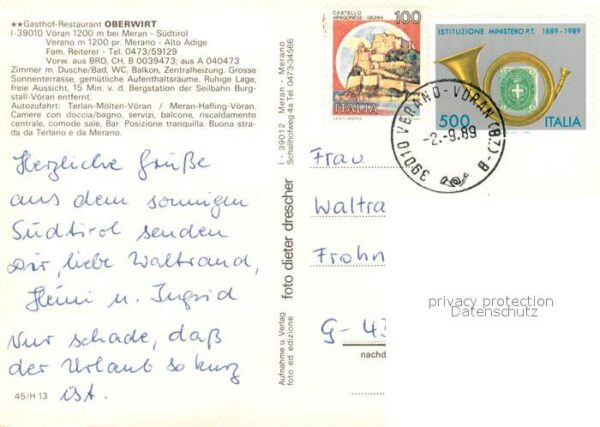 ★★Gasthof-Restaurant OBERWIRT
I-39010 Vöran 1200 m bei Meran - Südtirol
Verano m 1200 pr. Merano - Alto Adige
Fam. Reiterer - Tel. 0473/59129
Vorw. aus BRD, CH, B 0039473; aus A 040473
Zimmer m. Dusche/Bad, WC, Balkon, Zentralheizung. Grosse
Sonnenterrasse, gemütliche Aufenthaltsräume. Ruhige Lage,
freie Aussicht, 15 Min. v. d. Bergstation der Seilbahn Burg-
stall-Vöran entfernt.
Autozufahrt: Terlan-Mölten-Vöran / Meran-Hafling-Vöran.
Camere con doccia/bagno, servizi, balcone, riscaldamento
centrale, comode sale, Bar. Posizione tranquilla. Buona stra-
da da Terlano e da Merano.
Herzliche Grüße
aus dem sonnigen
Südtirol senden
Dir, liebe Waltraud,
Heini u. Ingrid
Nur schade, daß
der Urlaub so kurz
ist.
45/H 13
I - 39012 Meran - Merano
Schallhofweg 4a Tel. 0473-34566
foto dieter drescher
Aufnahme u. Verlag
foto ed edizione
CASTELLO
ARAGONESE - ISCHIA
100
ITALIA
ISTITUZIONE MINISTERO P.T. 1889-1989
500
ITALIA
39010 VERANO-VÖRAN (BZ) - B
-2.-9.89
Frau
Waltra
Frohn
G-43
nachd
privacy protection
Datenschutz